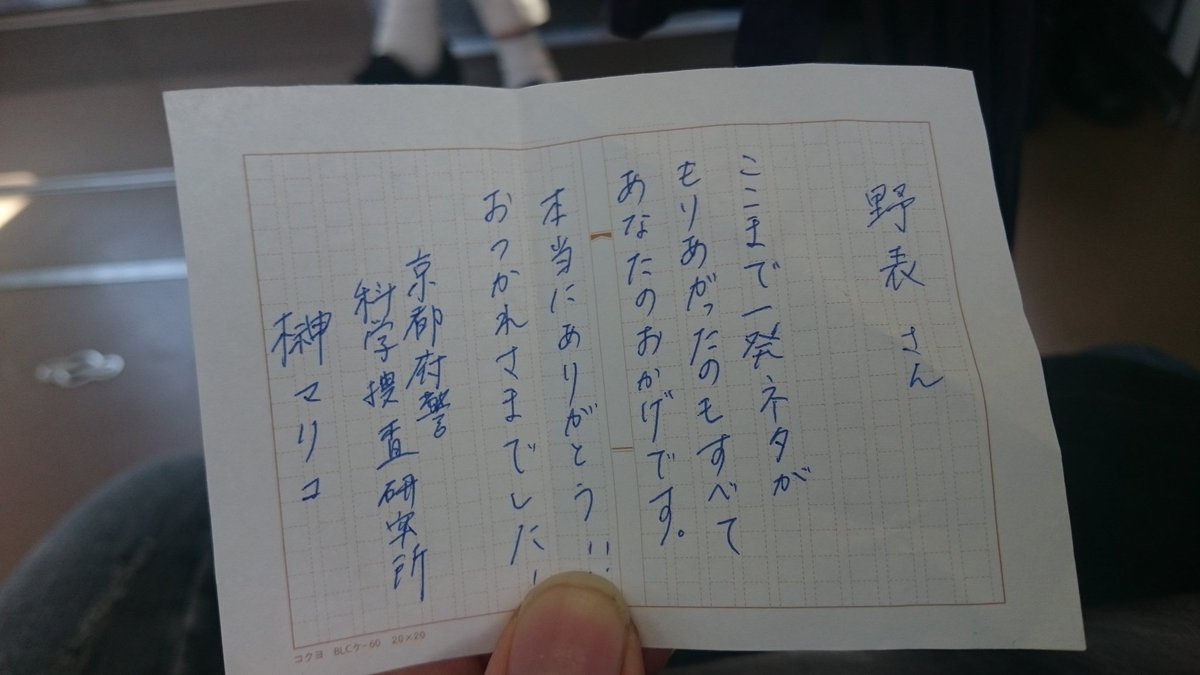 野表さん
ここまで一発ネタが
もりあがったのもすべて
あなたのおかげです。
本当にありがとう!!
おつかれさまでした!
京都府警
科学捜査研究所
榊マリコ
コクヨ BLCケ-60 20×20